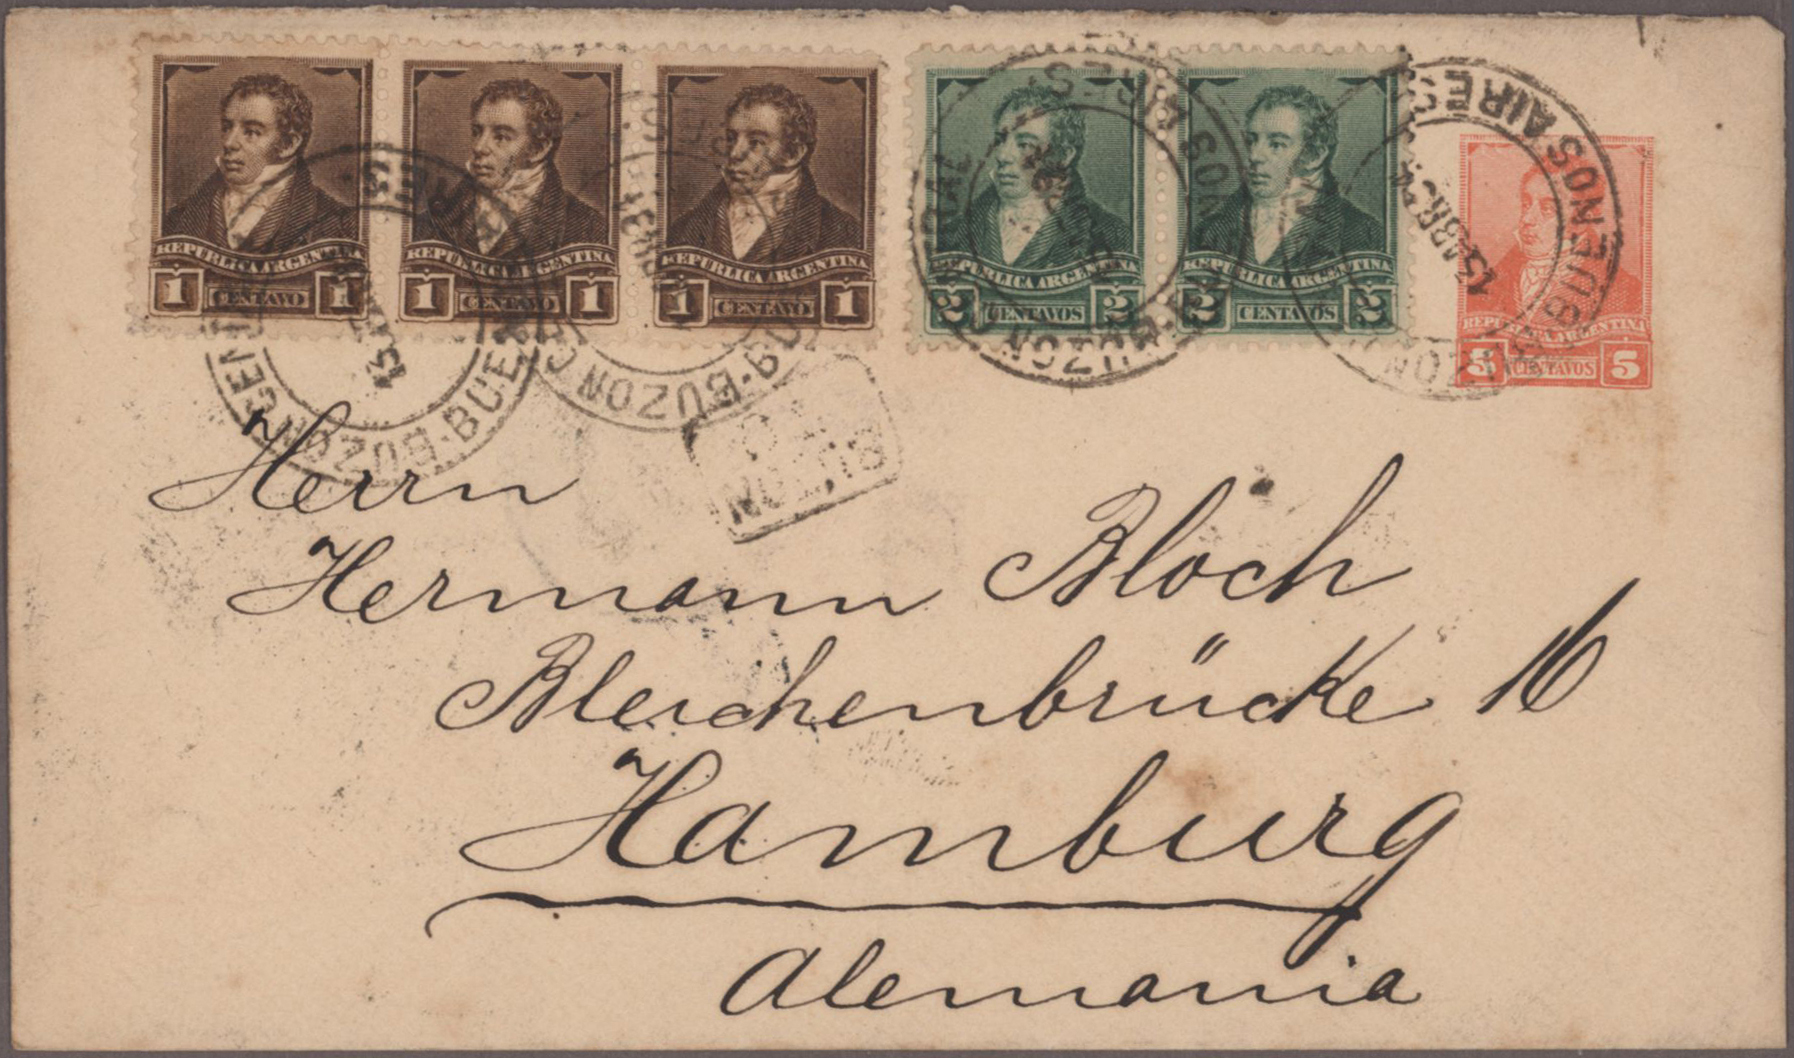 REPUBLICA ARGENTINA
1 CENTAVO 1
REPUBLICA ARGENTINA
1 CENTAVO 1
REPUBLICA ARGENTINA
1 CENTAVO 1
REPUBLICA ARGENTINA
2 CENTAVOS 2
REPUBLICA ARGENTINA
2 CENTAVOS 2
REPUBLICA ARGENTINA
5 CENTAVOS 5
BUENOS AIRES
13 ABR
BUZON
BUZON
Herrn
Hermann Bloch
Bleichenbrücke 16
Hamburg
Alemania